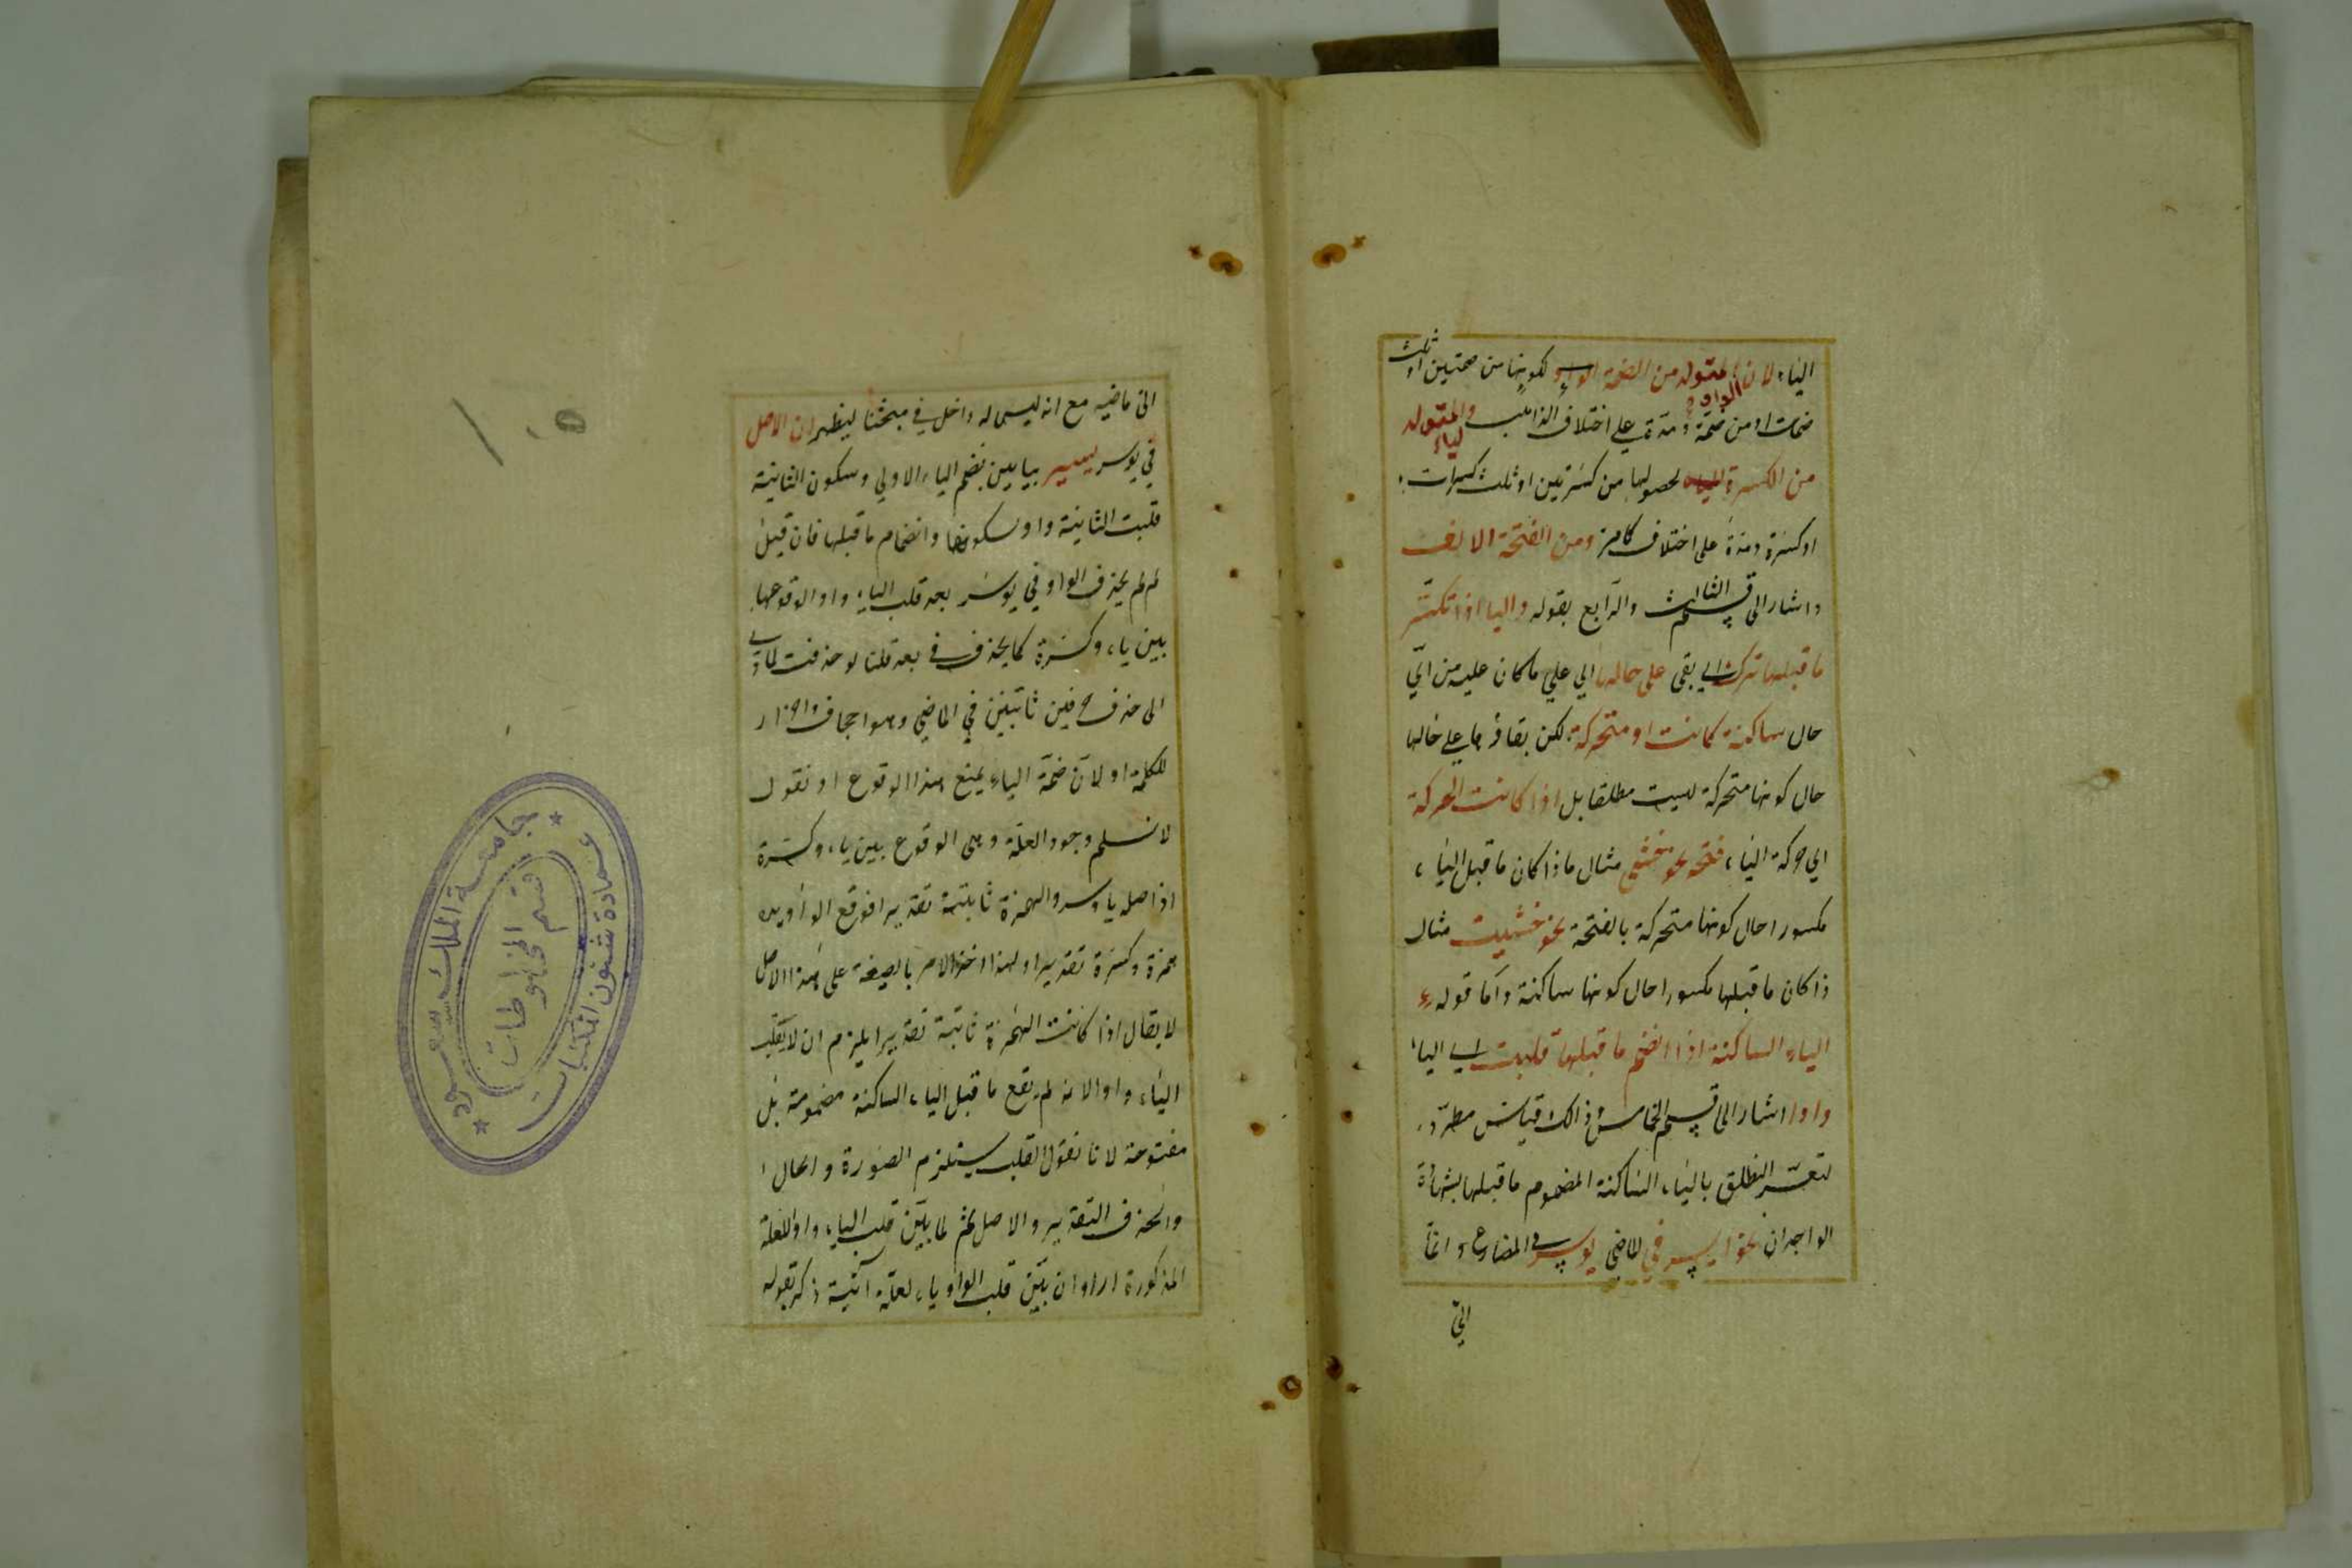 الياء لان المتولد من الضمة الواو لكونها من ضمتين او ثلث
ضمات او من ضمة الواو ومدة على اختلاف المذاهب والمتولد
من الكسرة الياء لحصولها من كسرتين او ثلث كسرات
او كسرة ومدة على اختلاف كامرّ ومن الفتحة الالف
واشار الى قسم الثالث والرابع بقوله والياء اذا تكسر
ما قبلها تركت اي بقى على حالها اي على ما كان عليه من اي
حال ساكنة كانت او متحركة لكن بقاؤها على حالها
حال كونها متحركة ليست مطلقا بل اذا كانت الحركة
اي حركة الياء فتحة نحو خشي مثال ما ذا كان ما قبل الياء
مكسورا حال كونها متحركة بالفتحة نحو خشيت مثال
ذا كان ما قبلها مكسورا حال كونها ساكنة واما قوله
الياء الساكنة اذا انضم ما قبلها قلبت اي الياء
واوا اشار الى قسم الخامس وذالك قياس مطرد
لتعسر النطق بالياء الساكنة المضموم ما قبلها بشهادة
الواجدان نحو ايسر في الماضي يوسر في المضارع وانما
الى
الى ماضيه مع انه ليس له داخل في مبحثنا ليظهر ان الاصل
في يوسر ييسر بيايين بضم الياء الاولي وسكون الثانية
قلبت الثانية واو لسكونها وانضمام ما قبلها فان قيل
لم لم يحذف الواو في يوسر بعد قلب الياء واوا لوقوعها
بين ياء وكسرة كما يحذف في بعد قلنا لو حذفت لادى
الى حذف حرفين ثابتين في الماضي وهو اجحاف واضرار
للكلمة او لان ضمة الياء يمنع هذا الوقوع او نقول
لا نسلم وجود العلة وهى الوقوع بين ياء وكسرة
اذ اصله يا وسر والهمزة ثابتة تقديرا فوقع الواو بين
همزة وكسرة تقديرا ولهذا اخذ الامر بالصيغة على هذا الاصل
لا يقال اذا كانت الهمزة ثابتة تقديرا يلزم ان لا يقلب
الياء واوا لانه لم يقع ما قبل الياء الساكنة مضمومة بل
مفتوحة لانا نقول القلب يستلزم الصورة والحال
والحذف التقدير والاصل ثم لما بين قلب الياء واوا للعلة
المذكورة اراد ان يبين قلب الواو ياء لعلة آتية ذكر بقوله
جامعة الملك سعود
عمادة شئون المكتبات
قسم المخطوطات